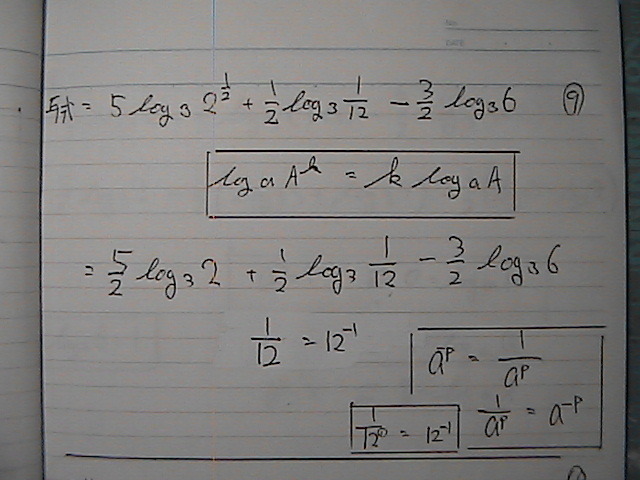 NO.
DATE
与式 = 5 log₃ 2^(1/2) + 1/2 log₃ 1/12 - 3/2 log₃ 6 ⑨
log a A^k = k log a A
= 5/2 log₃ 2 + 1/2 log₃ 1/12 - 3/2 log₃ 6
1/12 = 12⁻¹
a^-p = 1/a^p
1/a^p = a^-p